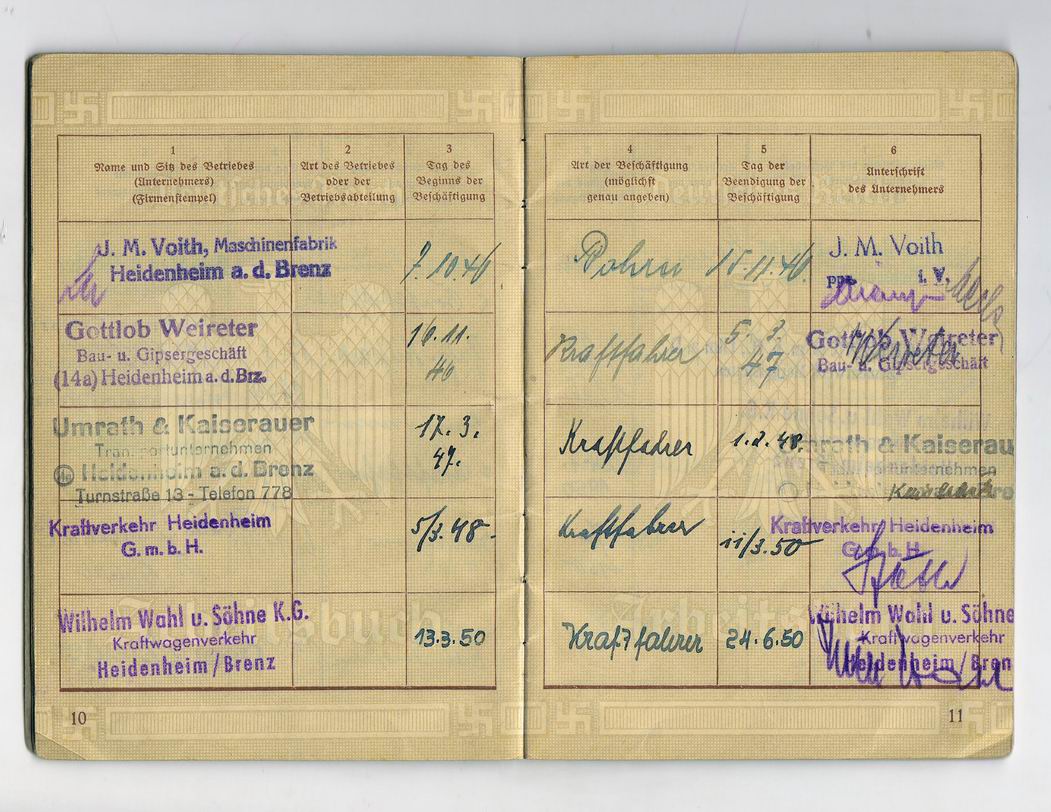 1
Name und Sitz des Betriebes
(Unternehmers)
(Firmenstempel)
2
Art des Betriebes
oder der
Betriebsabteilung
3
Tag des
Beginns der
Beschäftigung
4
Art der Beschäftigung
(möglichst
genau angeben)
5
Tag der
Beendigung der
Beschäftigung
6
Unterschrift
des Unternehmers
J. M. Voith, Maschinenfabrik
Heidenheim a. d. Brenz
7.10.46
15.11.46
J. M. Voith
ppa. i. V.
Gottlob Weireter
Bau- u. Gipsergeschäft
(14a) Heidenheim a. d. Brz.
16.11.
46
Kraftfahrer
5. 3.
47
Gottlob Weireter
Bau- u. Gipsergeschäft
Weireter
Umrath & Kaiserauer
Transportunternehmen
Heidenheim a. d. Brenz
Turnstraße 13 - Telefon 778
17. 3.
47.
Kraftfahrer
1.2.48
Umrath & Kaiserau
Transportunternehmen
Kraftverkehr Heidenheim
G.m.b.H.
5/3.48-
Kraftfahrer
11/3.50
Kraftverkehr Heidenheim
G.m.b.H.
Wilhelm Wahl u. Söhne K.G.
Kraftwagenverkehr
Heidenheim/Brenz
13.3.50
Kraftfahrer
24.6.50
Wilhelm Wahl u. Söhne
Kraftwagenverkehr
Heidenheim/Bren
10
11